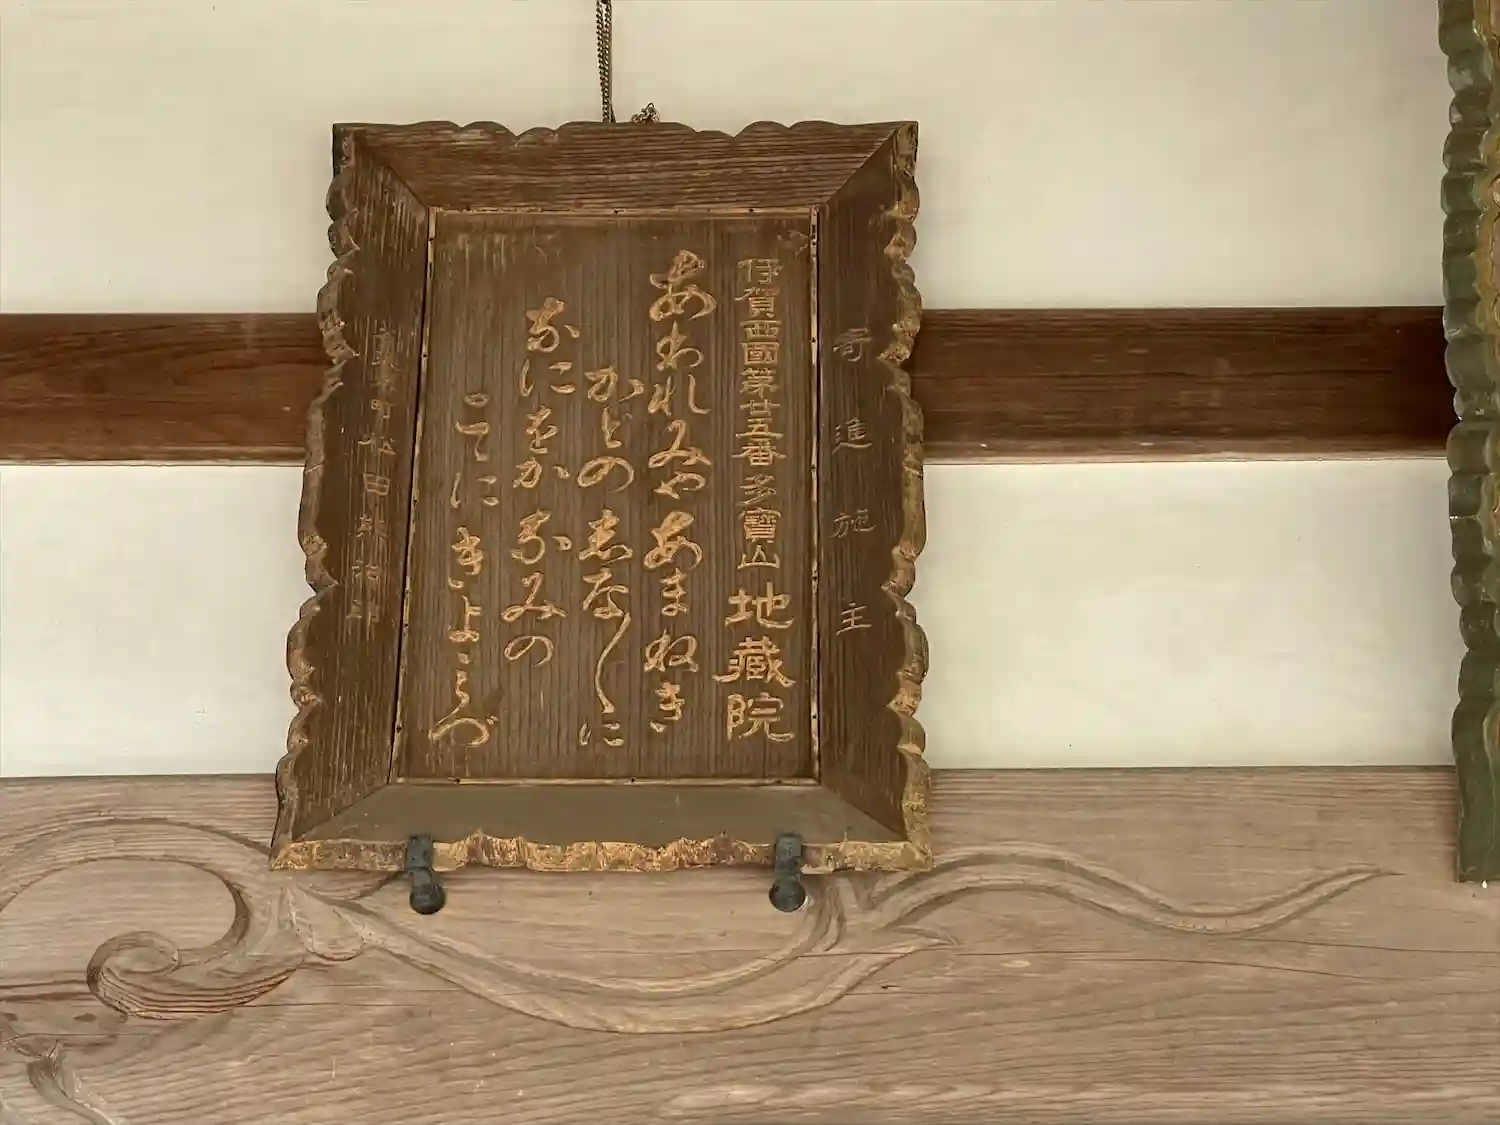 寄進施主
伊賀西國第廿五番多寳山地藏院
あわれみやあまねき
かどの志な〳〵に
なにをかなみの
こゝにきよらづ
松田